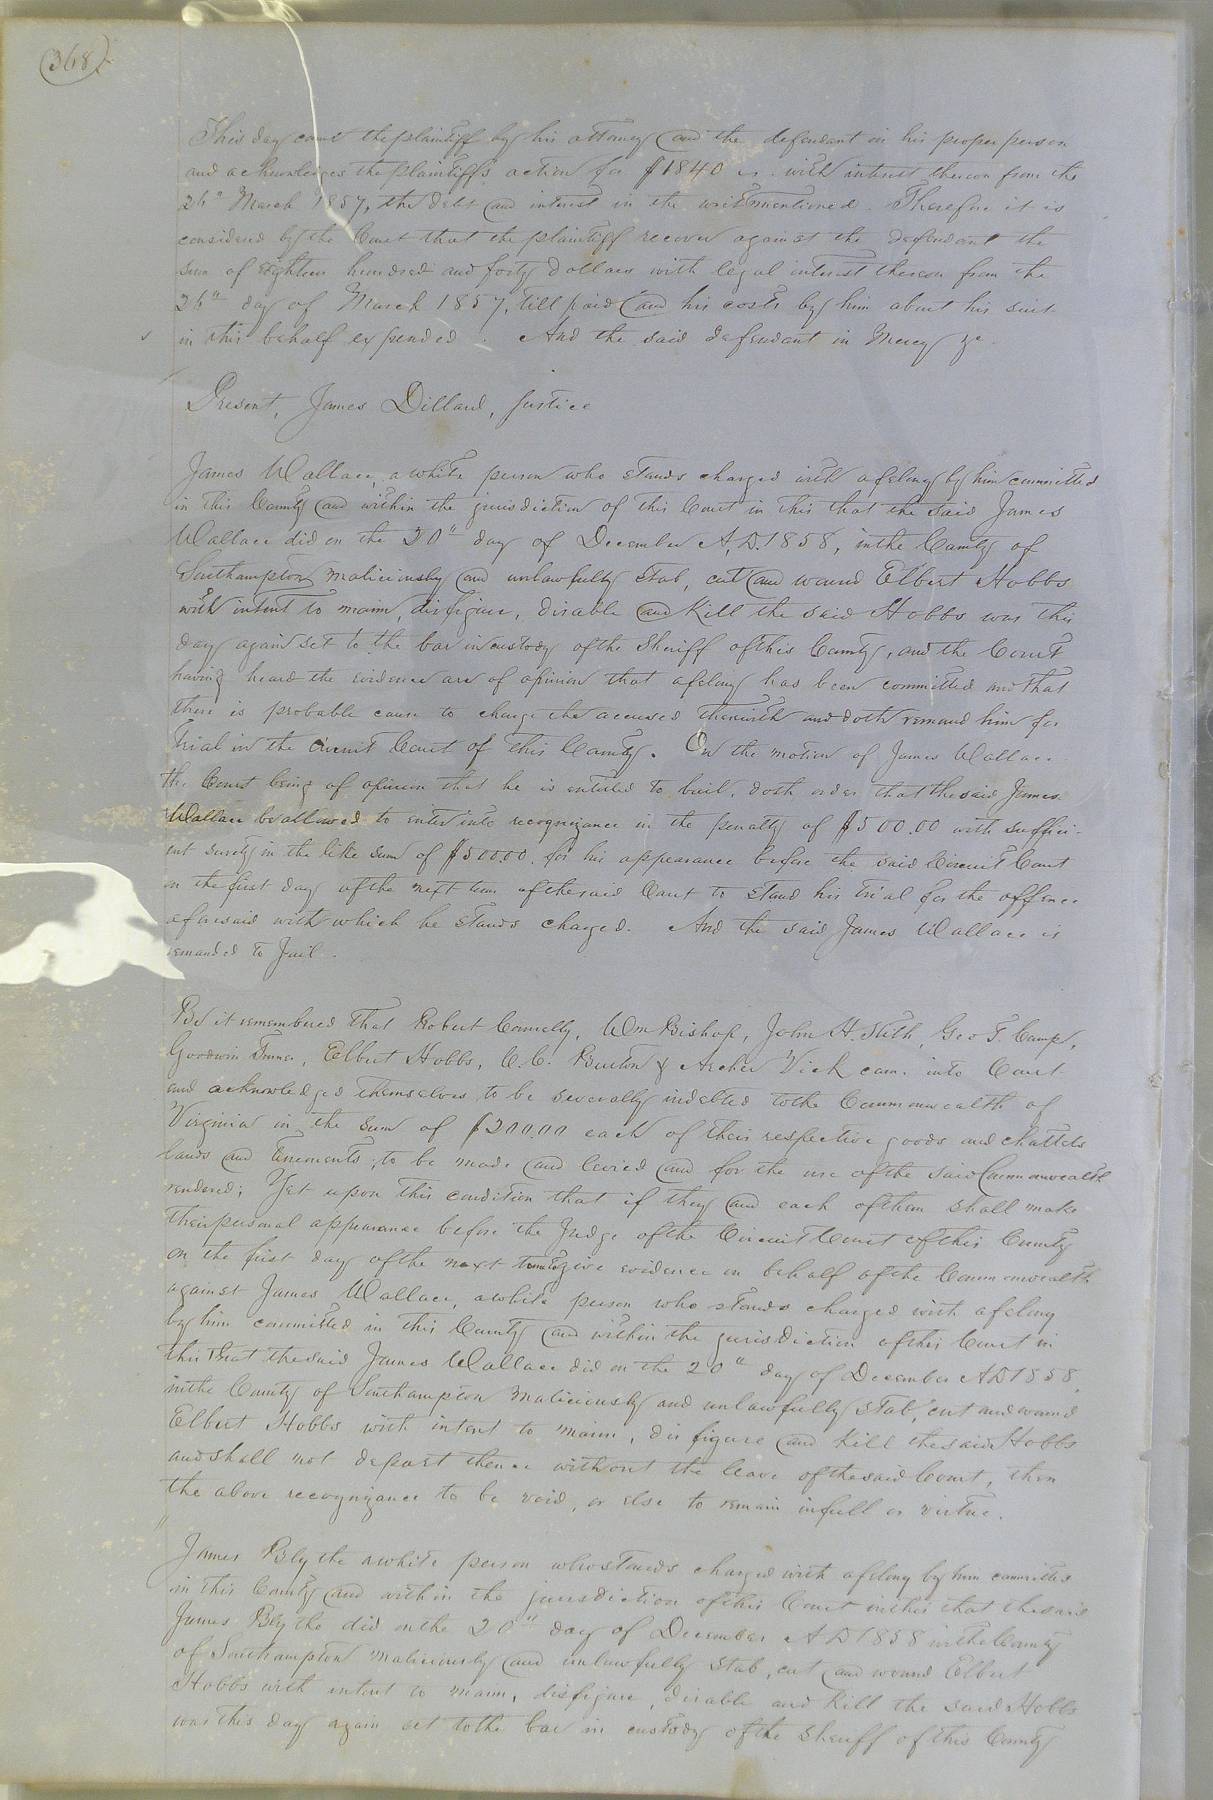 368
This day came the plaintiff by his attorney and the defendant in his proper person
and acknowledges the plaintiff's action for $1840 with interest thereon from the
26" March 1857, the debt and interest in the writ mentioned. Therefore it is
considered by the Court that the plaintiff recover against the defendant the
sum of Eighteen hundred and forty dollars with legal interest thereon from the
26th day of March 1857, till paid and his costs by him about his suit
in this behalf expended. And the said defendant in Mercy &c.
Present, James Dillard, Justice
James Wallace, a white person who stands charged with a felony by him committed
in this County and within the jurisdiction of this Court in this that the said James
Wallace did on the 20" day of December A.D. 1858, in the County of
Southampton maliciously and unlawfully stab, cut and wound Elbert Hobbs
with intent to maim, disfigure, disable and kill the said Hobbs was this
day again set to the bar in custody of the Sheriff of this County, and the Court
having heard the evidence are of opinion that a felony has been committed and that
there is probable cause to charge the accused therewith and doth remand him for
trial in the circuit Court of this County. On the motion of James Wallace
the Court being of opinion that he is entitled to bail, doth order that the said James
Wallace be allowed to enter into recognizance in the penalty of $500.00 with suffici-
ent surety in the like sum of $500.00 for his appearance before the said Circuit Court
on the first day of the next term of the said Court to stand his trial for the offence
aforesaid with which he stands charged. And the said James Wallace is
remanded to Jail.
Be it remembered that Robert Connelly, Wm Bishop, John H. Stith, Geo T. Camp,
Goodwin Turner, Elbert Hobbs, C. C. Burton & Archer Vick came into Court
and acknowledged themselves to be severally indebted to the Commonwealth of
Virginia in the sum of $200.00 each of their respective goods and chattels
lands and tenements, to be made and levied and for the use of the said Commonwealth
rendered; Yet upon this condition that if they and each of them shall make
their personal appearance before the Judge of the Circuit Court of this County
on the first day of the next term to give evidence on behalf of the Commonwealth
against James Wallace, a white person who stands charged with a felony
by him committed in this County and within the jurisdiction of this Court in
this that the said James Wallace did on the 20" day of December AD 1858,
in the County of Southampton maliciously and unlawfully stab, cut and wound
Elbert Hobbs with intent to maim, disfigure and kill the said Hobbs
and shall not depart thence without the leave of the said Court, then
the above recognizance to be void, or else to remain in full or virtue.
James Blythe a white person who stands charged with a felony by him committed
in this County and within the jurisdiction of this Court in this that the said
James Blythe did on the 20" day of December AD 1858 in the County
of Southampton maliciously and unlawfully stab, cut and wound Elbert
Hobbs with intent to maim, disfigure, disable and kill the said Hobbs
was this day again set to the bar in custody of the Sheriff of this County